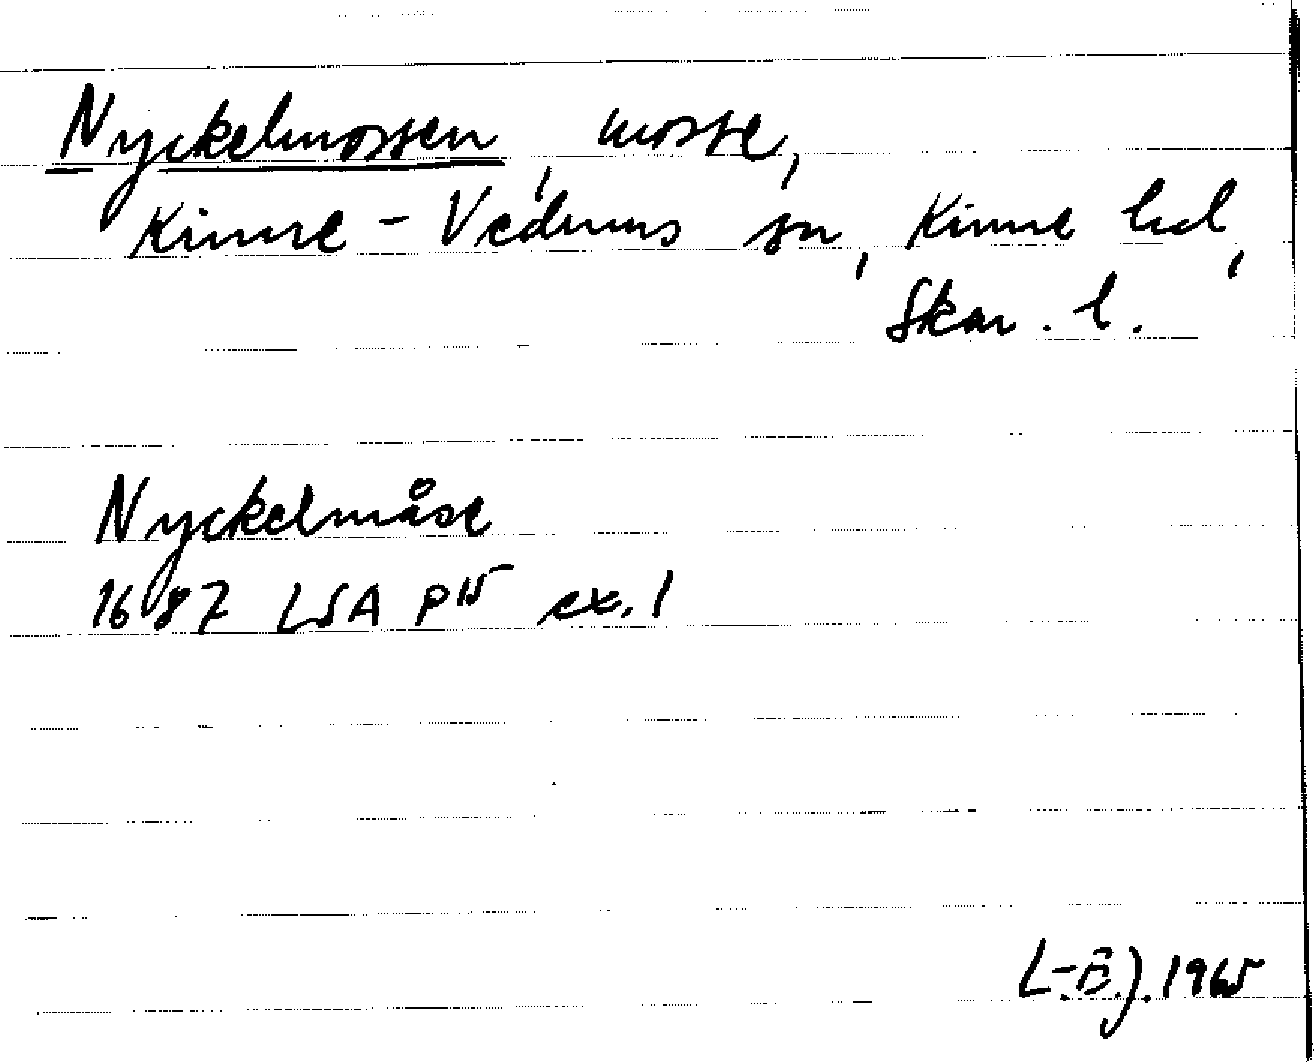 Nyckelmossen, mosse,
Kinne-Vedums sn, Kinne hd,
Skar. l.
Nyckelmåse
1687 LSA P15 ex. 1
L-E.J. 1965